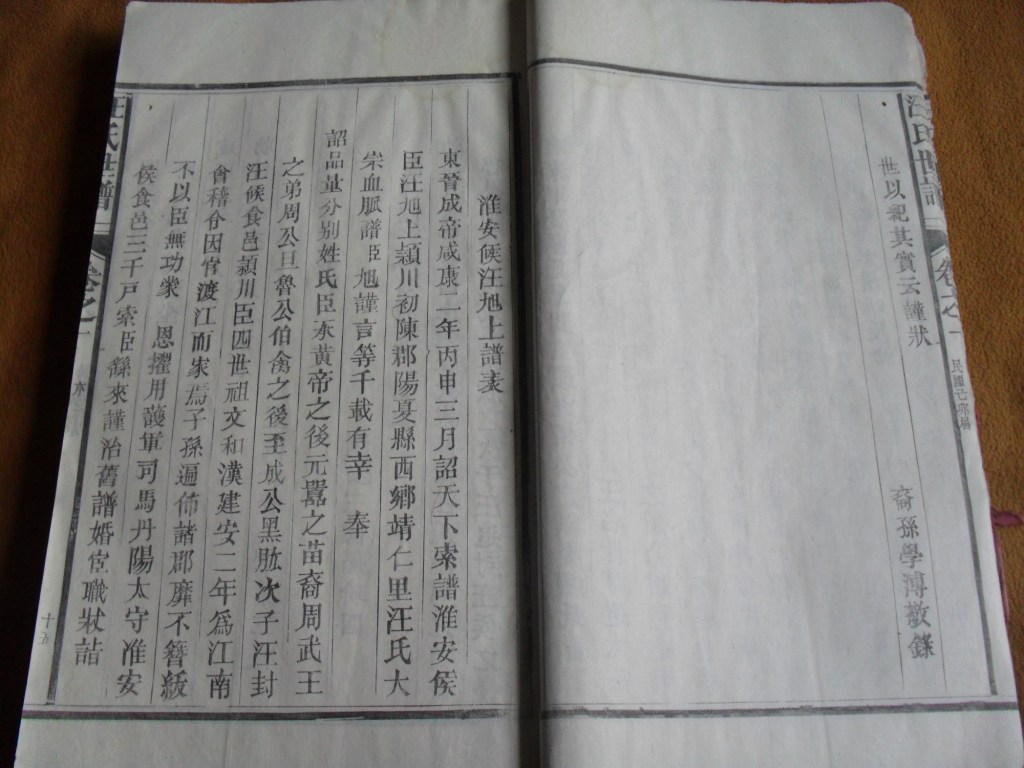 汪氏世譜
卷之一
世以紀其實云謹狀
裔孫學溥敬錄
淮安候汪旭上譜表
東晉成帝咸康二年丙申三月詔天下索譜淮安侯
臣汪旭上頴川初陳郡陽夏縣西鄉靖仁里汪氏大
宗血脈譜臣旭謹言等千載有幸 奉
詔品量分別姓氏臣本黄帝之後元嚣之苗裔周武王
之弟周公旦魯公伯禽之後至成公黑肱次子汪封
汪候食邑頴川臣四世祖文和漢建安二年為江南
會稽令因官渡江而家焉子孫遍佈諸郡靡不簪紱
不以臣無功蒙 恩擢用護軍司馬丹陽太守准安
候食邑三千戸索臣繇來謹治舊譜婚宦職狀詣
汪氏世譜
卷之一
十五